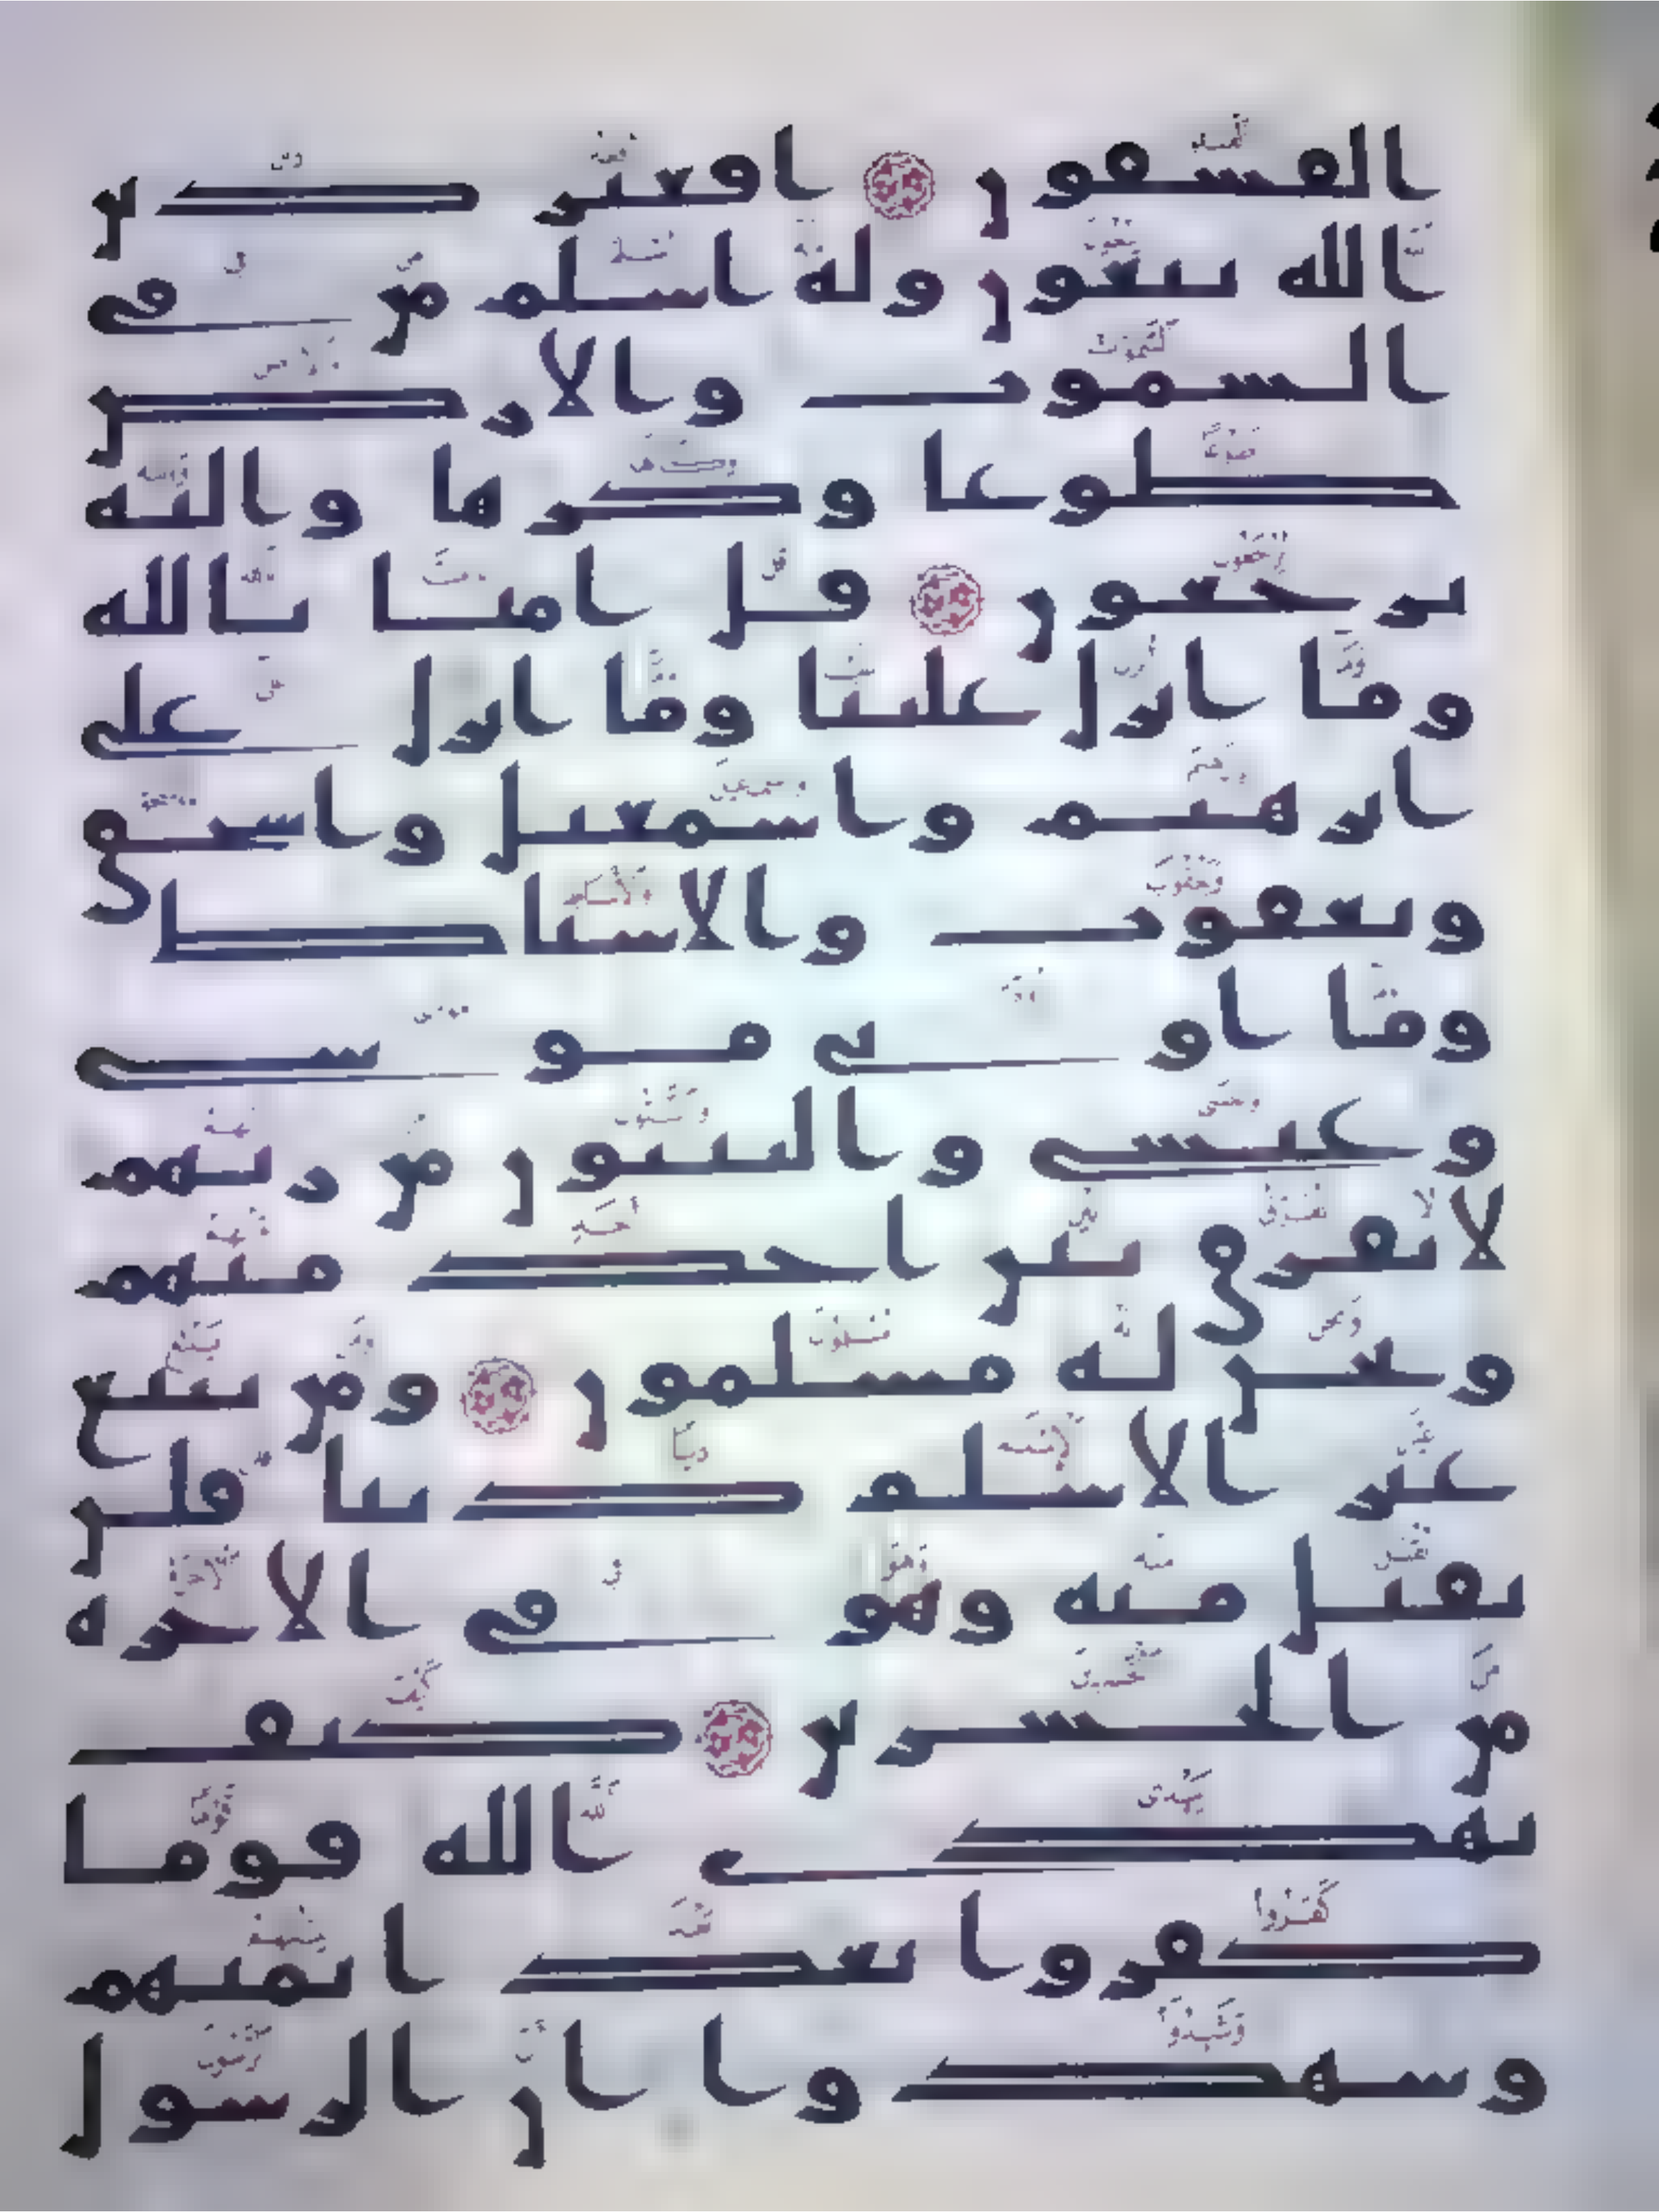 الفسقون افغير دين
الله يبغون وله اسلم من في
السموت والارض
طوعا وكرها واليه
يرجعون قل امنا بالله
وما انزل علينا وما انزل على
ابرهيم واسمعيل واسحق
ويعقوب والاسباط
وما اوتي موسى
وعيسى والنبيون من ربهم
لا نفرق بين احد منهم
ونحن له مسلمون ومن يبتغ
غير الاسلم دينا فلن
يقبل منه وهو في الاخرة
من الخسرين كيف
يهدي الله قوما
كفروا بعد ايمنهم
وشهدوا ان الرسول